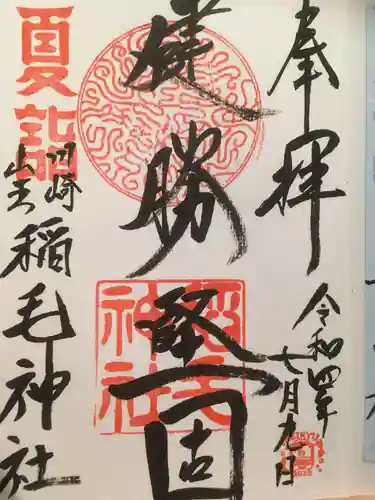 奉拝
令和四年
七月九日
健勝堅固
稲毛
神社
夏詣
川崎
山王
稲毛神社